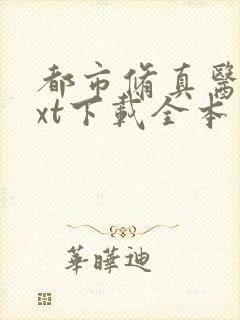 都市脩真醫
xt下載全本
華曄迪